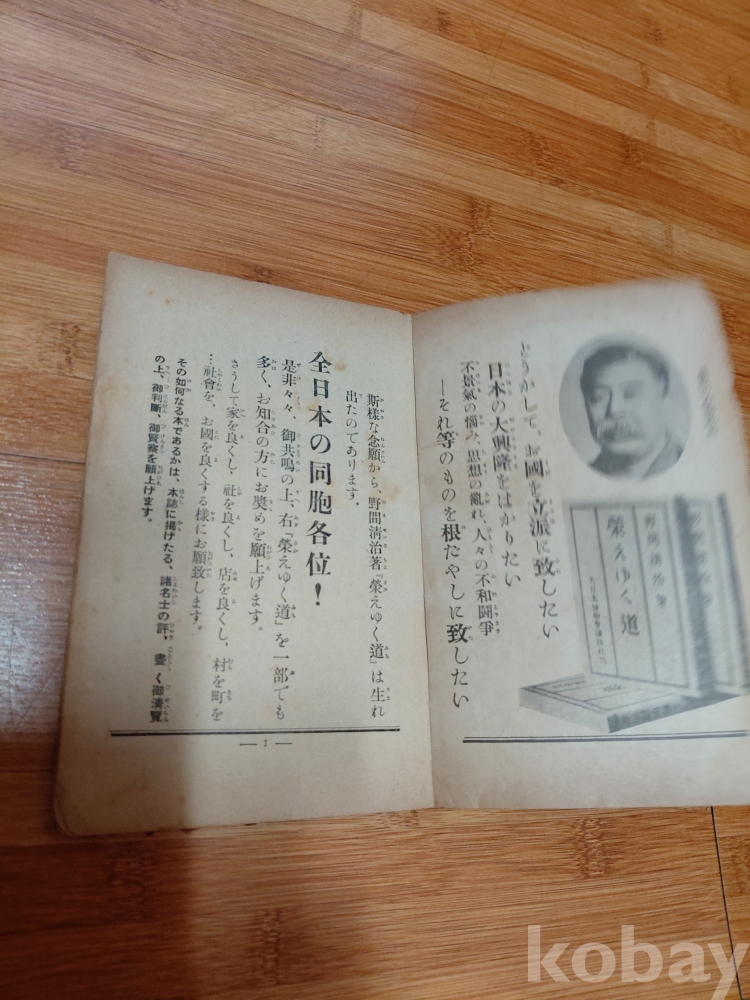 どうかして、お國を立派に致したい
日本の大興隆をはかりたい
不景氣の惱み、思想の亂れ、人々の不和鬪爭
―それ等のものを根だやしに致したい
榮えゆく道
斯樣な念願から、野間淸治著『榮えゆく道』は生れ
出たのであります。
全日本の同胞各位！
是非々々、御共鳴の上、右『榮えゆく道』を一部でも
多く、お知合の方にお奬めを願上げます。
さうして家を良くし、社を良くし、店を良くし、村を町を
…社會を、お國を良くする樣にお願致します。
その如何なる本であるかは、本誌に揭げたる、諸名士の評、盡く御淸覽
の上、御判斷、御賢察を願上げます。
— 1 —
kobay